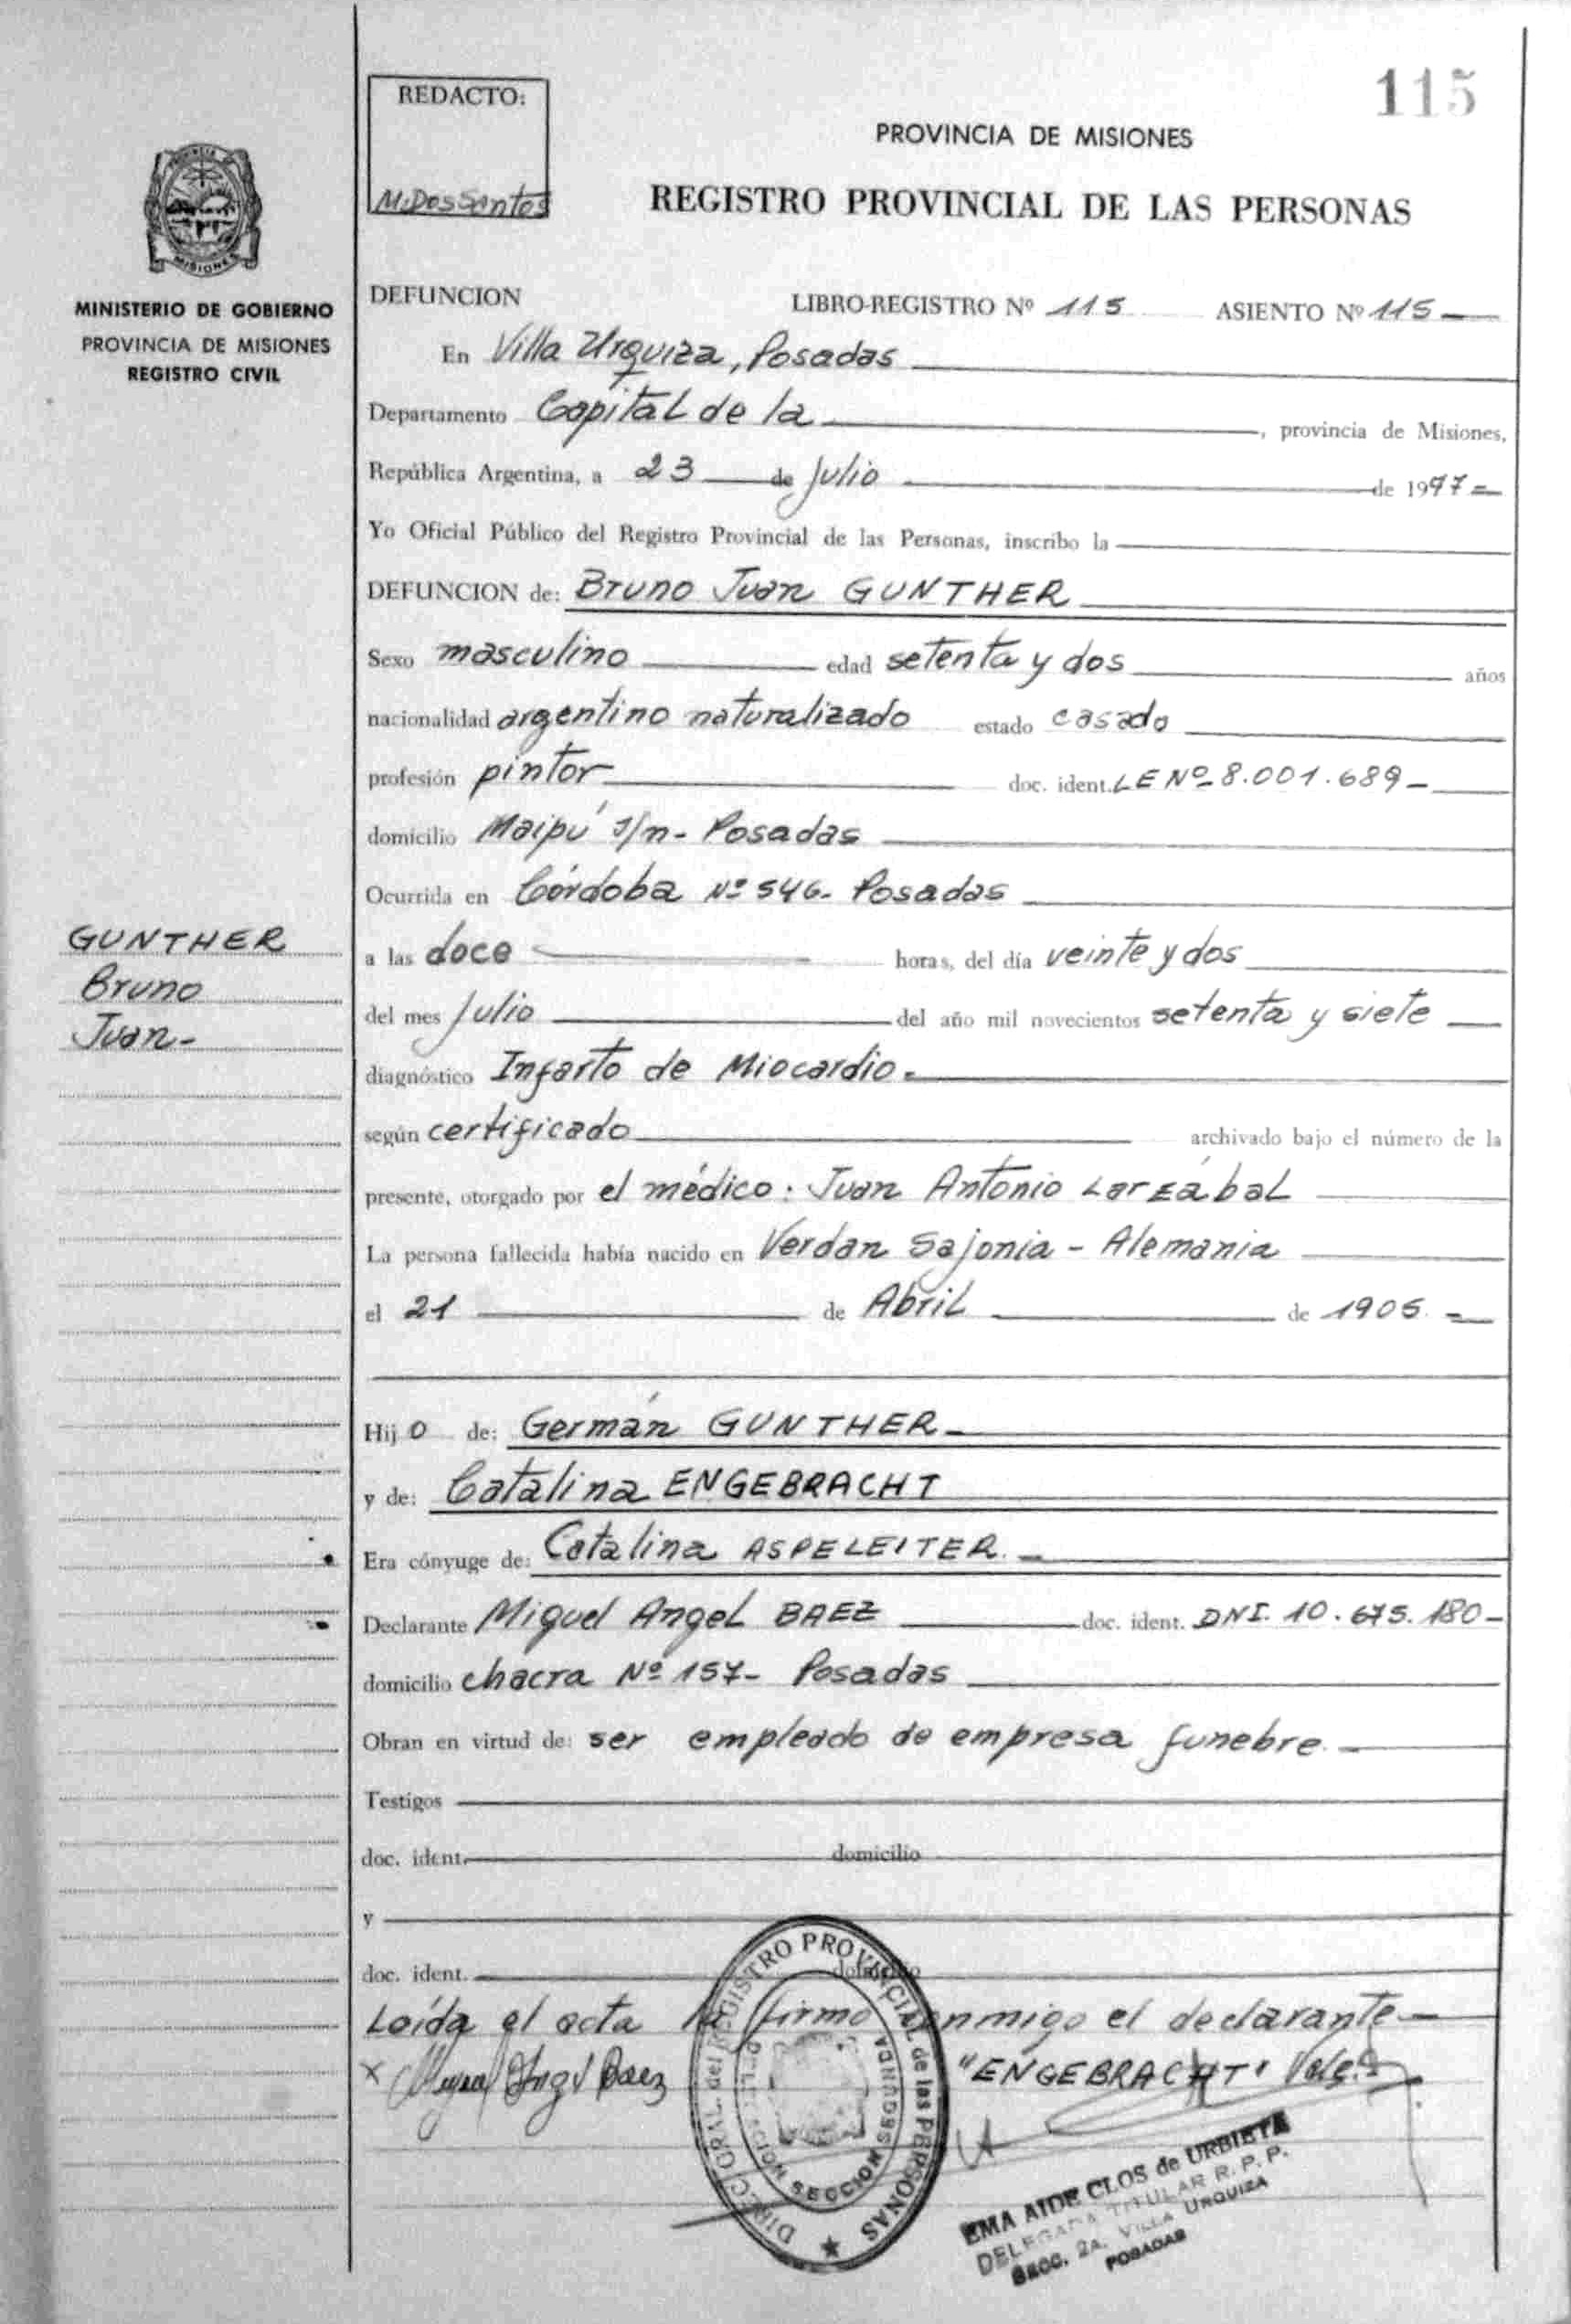 115
REDACTO:
M. Dos Santos
PROVINCIA DE MISIONES
REGISTRO PROVINCIAL DE LAS PERSONAS
MISIONES
MINISTERIO DE GOBIERNO
PROVINCIA DE MISIONES
REGISTRO CIVIL
DEFUNCION LIBRO-REGISTRO Nº 115 ASIENTO Nº 115
En Villa Urquiza, Posadas
Departamento Capital de la, provincia de Misiones,
República Argentina, a 23 de julio de 1977
Yo Oficial Público del Registro Provincial de las Personas, inscribo la
DEFUNCION de: Bruno Juan GUNTHER
Sexo masculino edad setenta y dos años
nacionalidad argentino naturalizado estado casado
profesión pintor doc. ident. LE Nº 8.001.689
domicilio Maipú s/n - Posadas
Ocurrida en Córdoba Nº 546 - Posadas
GUNTHER
Bruno
Juan -
a las doce horas, del día veinte y dos
del mes julio del año mil novecientos setenta y siete
diagnóstico Infarto de Miocardio.
según certificado archivado bajo el número de la
presente, otorgado por el médico: Juan Antonio Larzábal
La persona fallecida había nacido en Verdan Sajonia - Alemania
el 21 de Abril de 1905. -
Hijo de: Germán GUNTHER -
y de: Catalina ENGEBRACHT
Era cónyuge de: Catalina ASPELEITER. -
Declarante Miguel Angel BAEZ doc. ident. DNI. 10.675.180 -
domicilio chacra Nº 157 - Posadas
Obran en virtud de: ser empleado de empresa funebre. -
Testigos
doc. ident. domicilio
y
doc. ident. domicilio
Leída el acta la firmo conmigo el declarante -
x Miguel Angel Baez "ENGEBRACHT" Vale.
DIREC. GRAL. del REGISTRO PROVINCIAL de las PERSONAS
DELEGACION SECCION SEGUNDA
EMA AIDE CLOS de URBIETA
DELEGADA TITULAR R. P. P.
SECC. 2A. VILLA URQUIZA
POSADAS